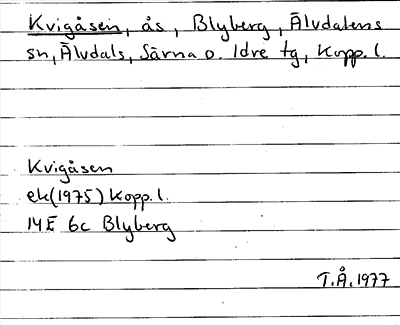 Kvigåsen, ås, Blyberg, Älvdalens
sn, Älvdals, Särna o. Idre tg, Kopp. l.
Kvigåsen
ek(1975) Kopp. l.
14E 6c Blyberg
T.Å. 1977